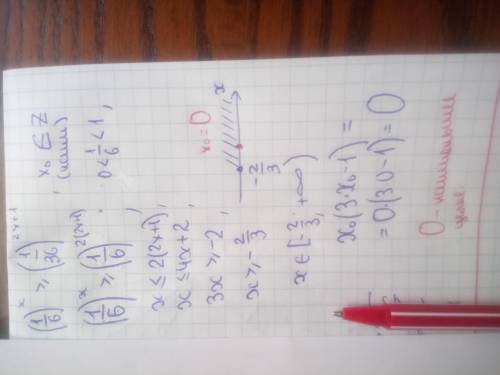 (1/6)^x ≥ (1/36)^(2x+1), x₀ ∈ Z
(1/6)^x ≥ (1/6)^(2(2x+1)); 0 < 1/6 < 1,
x ≤ 2(2x+1),
x ≤ 4x+2,
3x ≥ -2,
x ≥ -2/3
-2/3 x
x₀ = 0
x ∈ [-2/3, +∞)
x₀(3·x₀-1) =
= 0·(3·0-1) = 0
0 - наименьшим